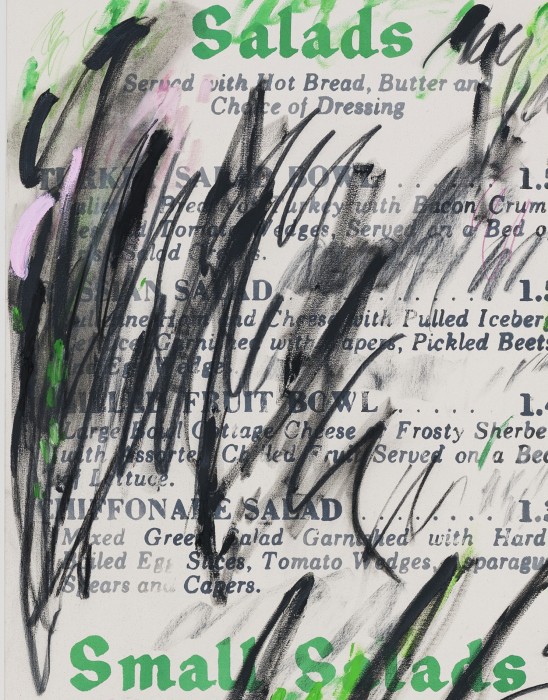 Salads
Served with Hot Bread, Butter and
Choice of Dressing
TURKEY SALAD BOWL . . . . . . 1.5
Breast of Turkey with Bacon Crum
Tomato Wedges, Served on a Bed o
Salad
RUSSIAN SALAD . . . . . . . . . 1.5
Julienne Ham and Cheese with Pulled Iceber
Garnished with Capers, Pickled Beets
and Egg Wedges.
CHILLED FRUIT BOWL . . . . . . 1.
Large Bowl Cottage Cheese Frosty Sherbe
with Assorted Chilled Fruit Served on a Bed
of Lettuce.
CHIFFONADE SALAD . . . . . . . . 1.3
Mixed Green Salad Garnished with Hard
Boiled Egg Slices, Tomato Wedges, Asparagu
Spears and Capers.
Small Salads